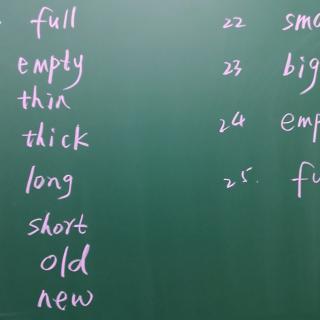 full
empty
thin
thick
long
short
old
new
22
23 big
24
25.